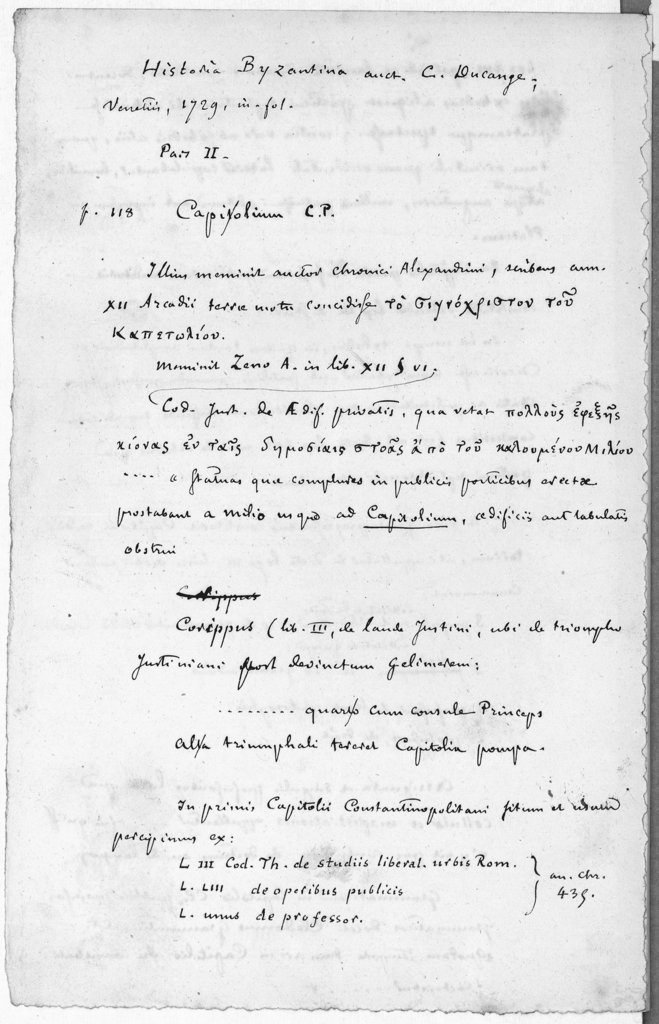 Historia Byzantina auct. C. Ducange,
Venetiis, 1729, in-fol.
Pars II.
p. 118 Capitolium C.P.
Illius meminit auctor chronici Alexandrini, scribens ann.
XII Arcadii terræ motu concidisse τὸ σιγνόχριστον τοῦ
Καπετωλίου.
Meminit Zeno A. in lib. XII § VI.
Cod. Just. de Ædif. privatis, qua vetat πολλοὺς ἐφεξῆς
κίονας ἐν ταῖς δημοσίαις στοαῖς ἀπὸ τοῦ καλουμένου Μιλίου
.... a statuas quæ complures in publicis porticibus erectæ
prostabant a Milio usque ad Capitolium, ædificiis aut tabulatis
obstrui
Corippus
Corippus (lib. III, de laude Justini, ubi de triompho
Justiniani post devinctum Gelimerem:
......... quarto cum consule Princeps
Alta triumphali tereret Capitolia pompa.
In primis Capitolii Constantinopolitani situm et usum
percipimus ex:
L III Cod. Th. de studiis liberal. urbis Rom.
L. LIII de operibus publicis
L. unus de professor.
an. Chr.
435.